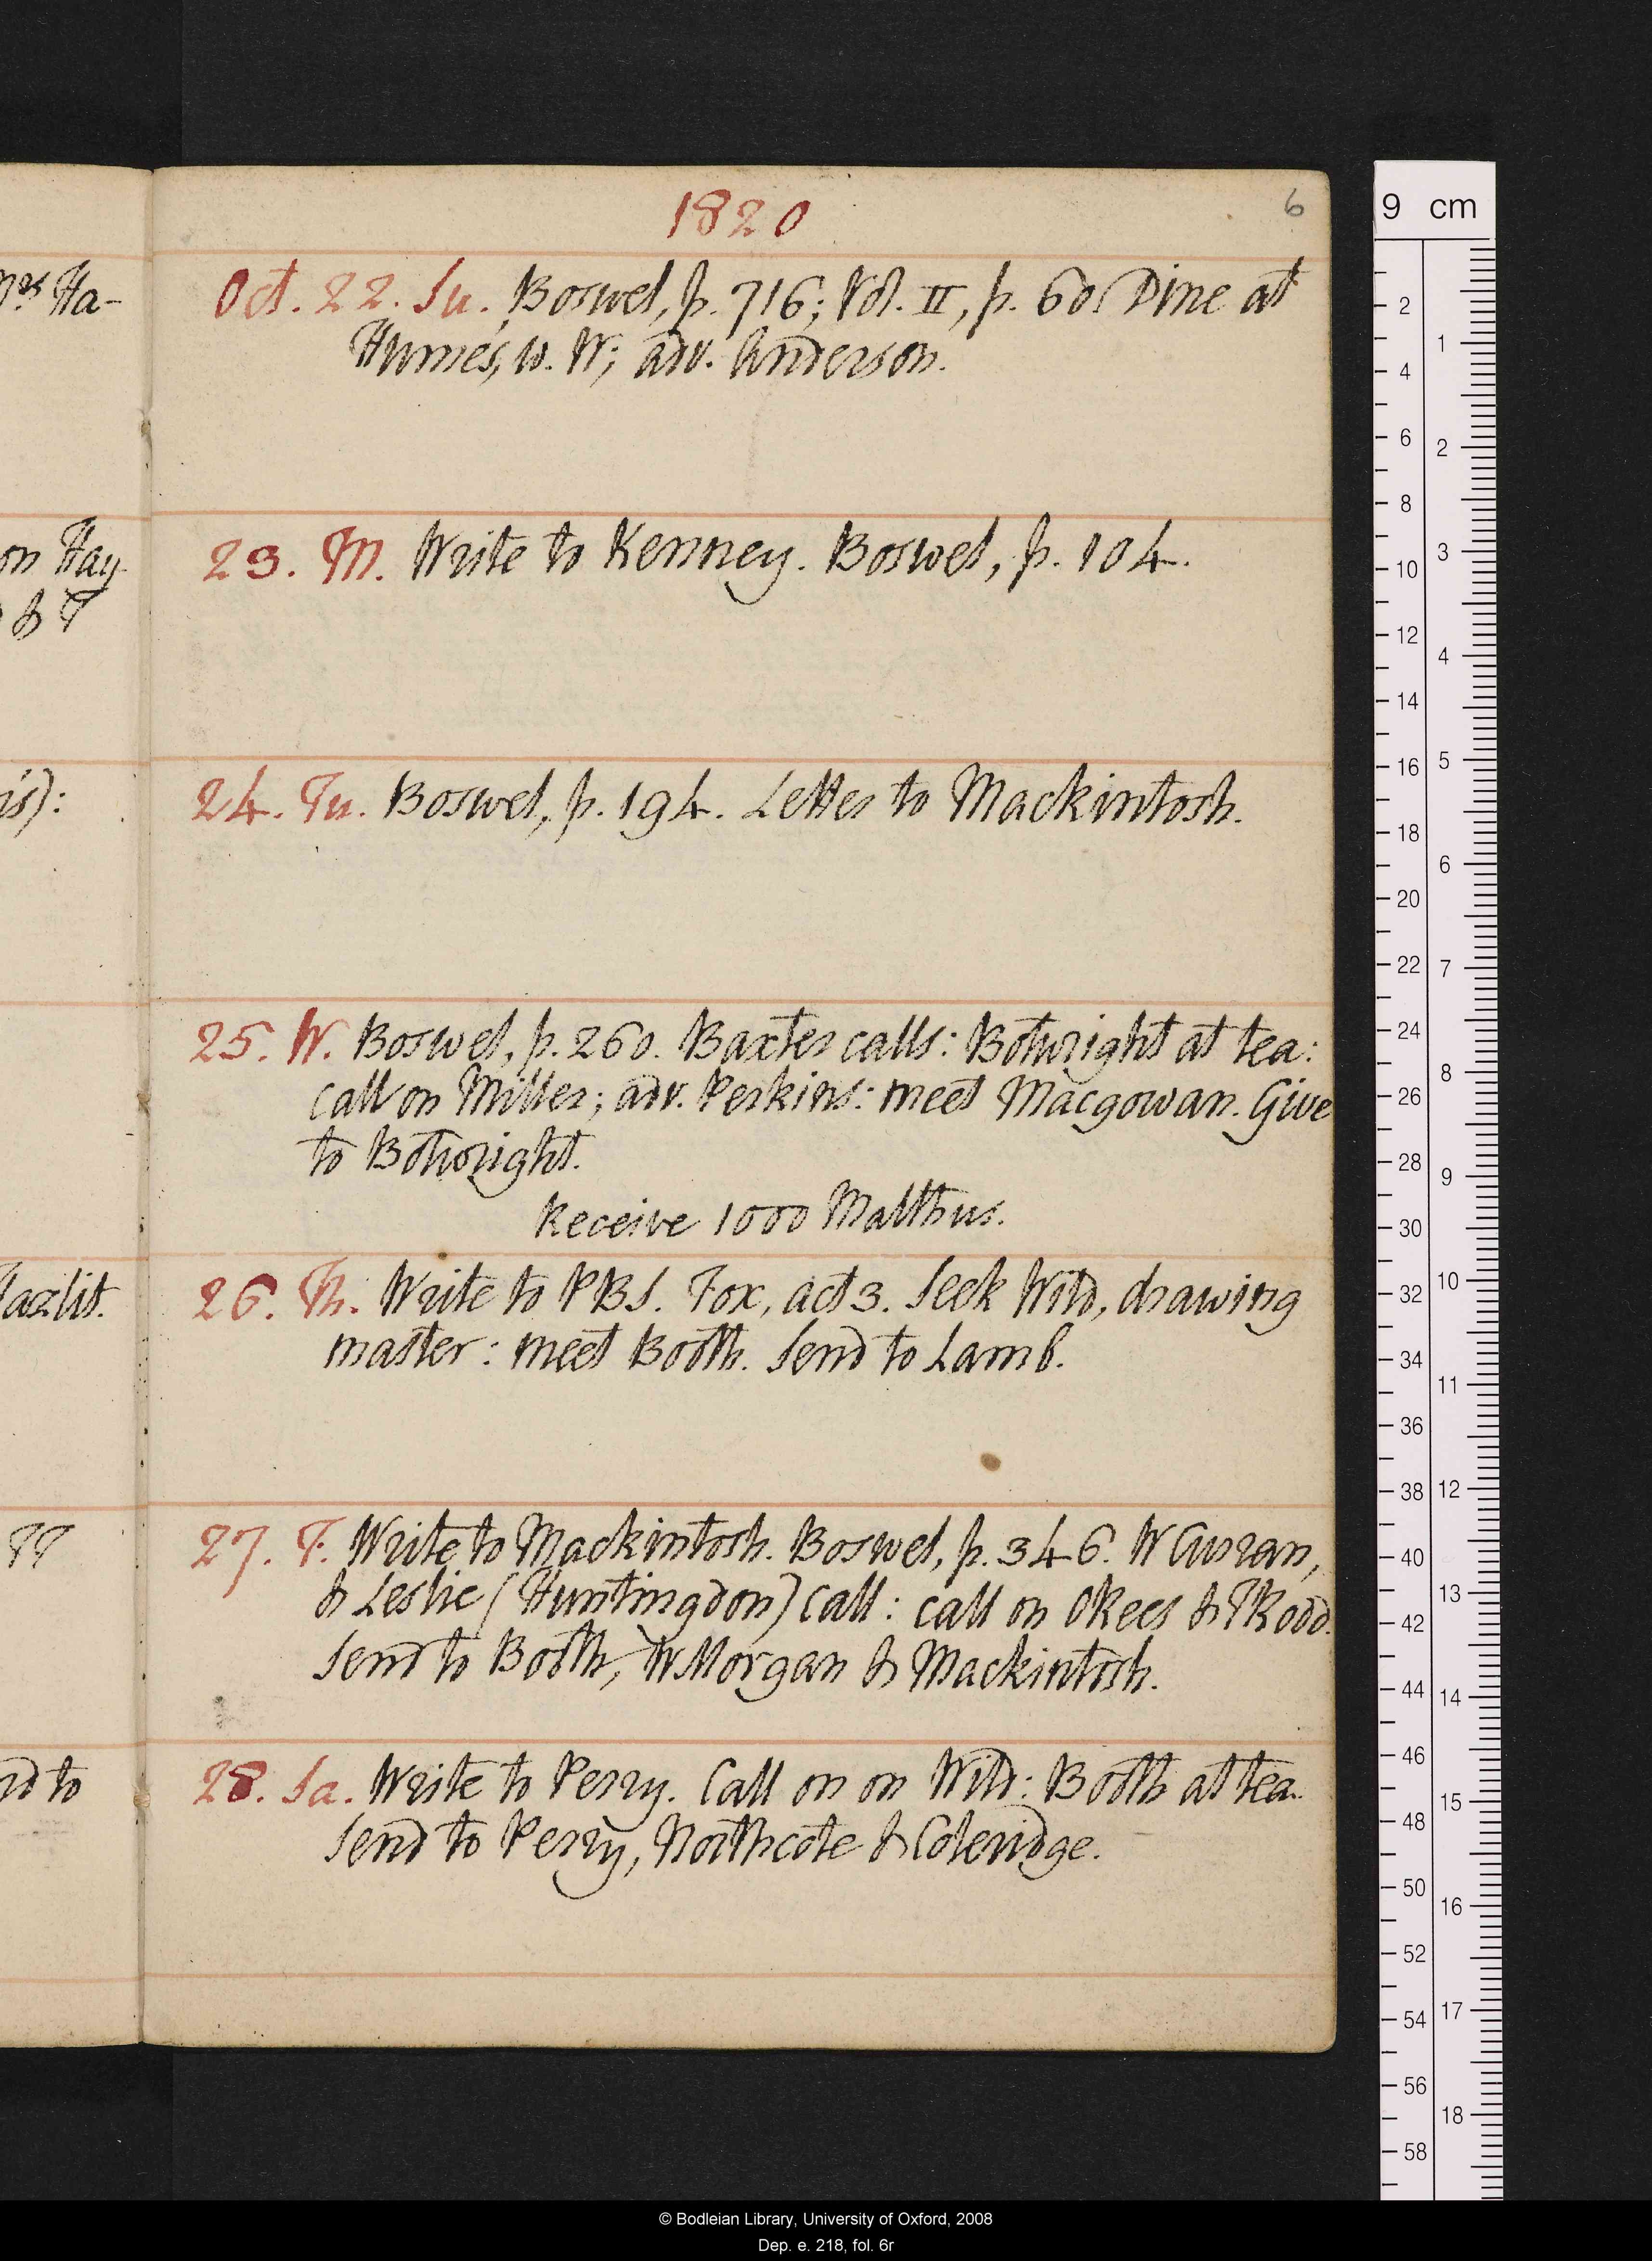 1820
6
Oct. 22. Su. Boswel, p. 716; Vol. II, p. 60. Dine at
Hume's, w. W; adv. Anderson.
23. M. Write to Kenney. Boswel, p. 104.
24. Tu. Boswel, p. 194. Letter to Mackintosh.
25. W. Boswel, p. 260. Baxter calls: Botwright at tea:
call on Miller; adv. Perkins: meet Macgowan. Give
to Botwright.
Receive 1000 Malthus.
26. Th. Write to PBS. Fox, act 3. Seek Wild, drawing
master: meet Booth. Send to Lamb.
27. F. Write to Mackintosh. Boswel, p. 346. W Curran,
& Leslie (Huntingdon) call: call on ORees & TRodd.
Send to Booth, W Morgan & Mackintosh.
28. Sa. Write to Perry. Call on on Wild: Booth at tea.
Send to Perry, Northcote & Coleridge.
Mrs Ha-
on Hay-
& T
is):
azlit.
TT
nd to
9 cm
2
4
6
8
10
12
14
16
18
20
22
24
26
28
30
32
34
36
38
40
42
44
46
48
50
52
54
56
58
1
2
3
4
5
6
7
8
9
10
11
12
13
14
15
16
17
18
© Bodleian Library, University of Oxford, 2008
Dep. e. 218, fol. 6r